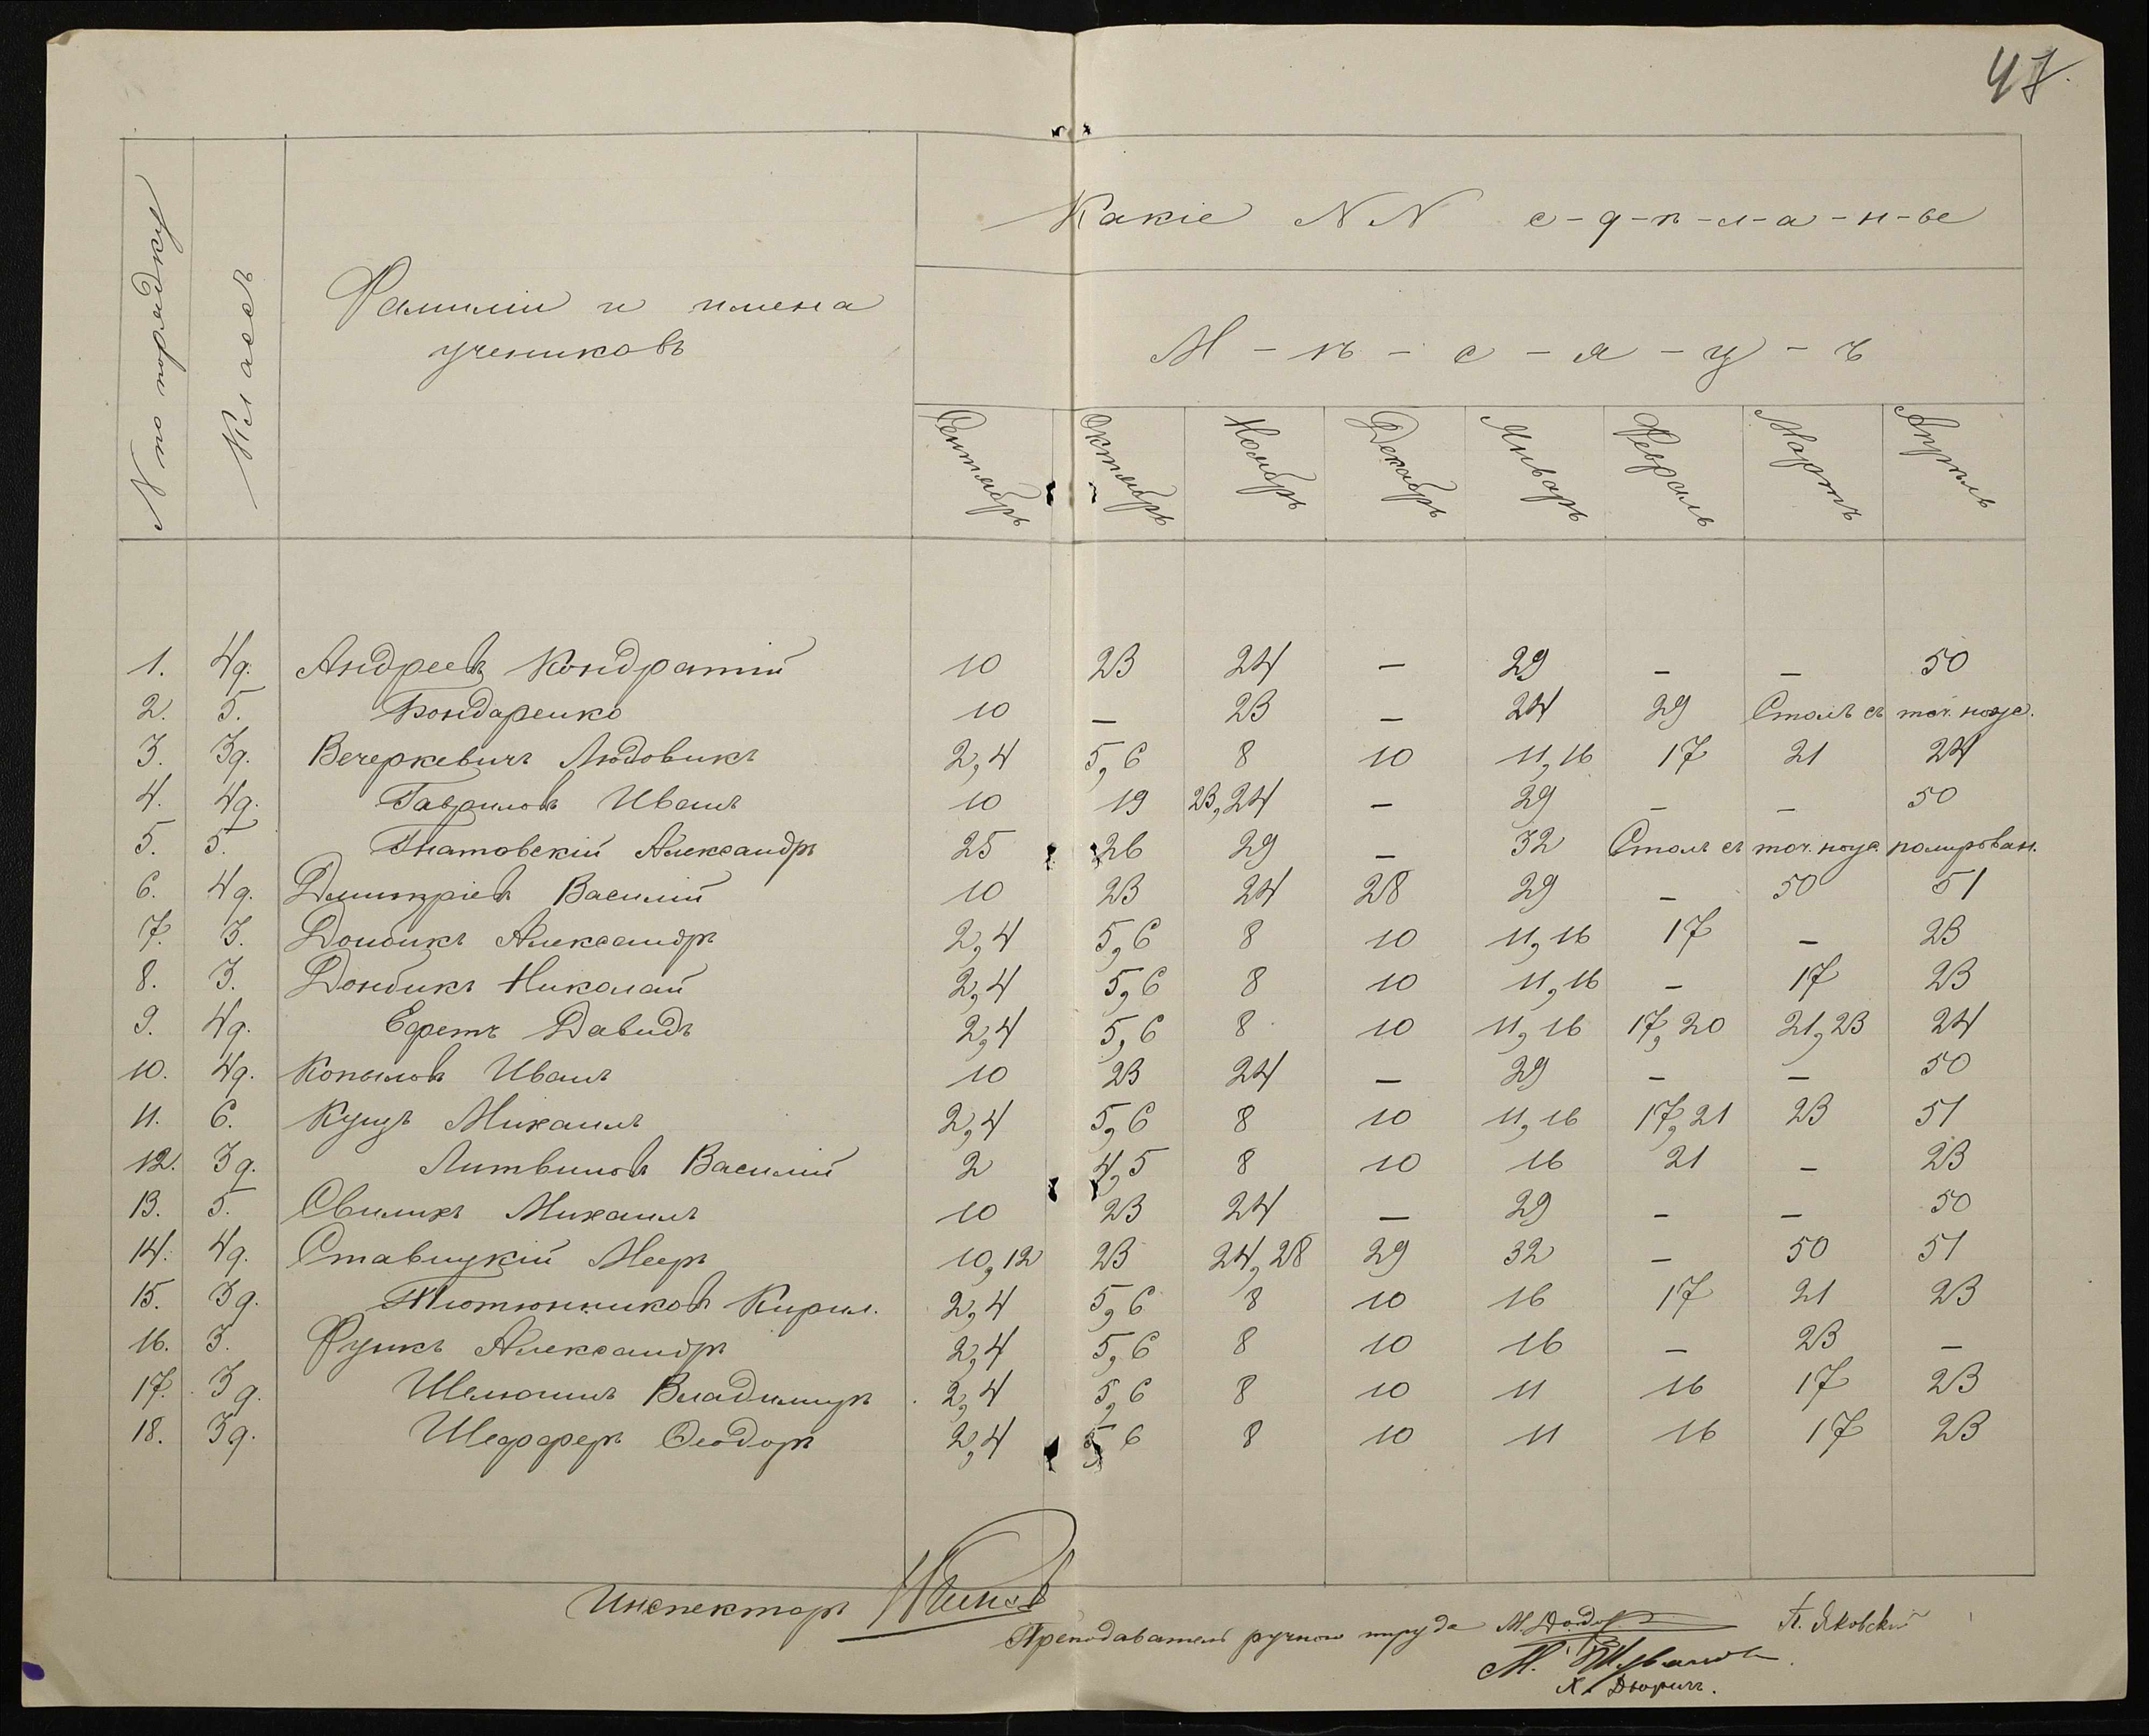 47.
N по порядку
Классъ
Фамиліи и имена
учениковъ
Какіе NN с-д-ѣ-л-а-н-ы
М-ѣ-с-я-ц-ъ
Сентябрь Октябрь Ноябрь Декабрь Январь Февраль Мартъ Апрѣль
1. 4д. Андреевъ Кондратій 10 23 24 — 29 — — 50
2. 5. Бондаренко 10 — 23 — 24 29 Столъ съ точ. нож.
3. 3д. Вечеркевичъ Людовикъ 2,4 5,6 8 10 11,16 17 21 24
4. 4д. Гавриловъ Иванъ 10 19 23,24 — 29 — — 50
5. 5. Гнатовскій Александръ 25 26 29 — 32 Столъ съ точ. нож. полирован.
6. 4д. Дмитріевъ Василій 10 23 24 28 29 — 50 51
7. 3. Домбикъ Александръ 2,4 5,6 8 10 11,16 17 — 23
8. 3. Домбикъ Николай 2,4 5,6 8 10 11,16 — 17 23
9. 4д. Ефетъ Давидъ 2,4 5,6 8 10 11,16 17,20 21,23 24
10. 4д. Копыловъ Иванъ 10 23 24 — 29 — — 50
11. 6. Кущъ Михаилъ 2,4 5,6 8 10 11,16 17,21 23 51
12. 3д. Литвиновъ Василій 2 4,5 8 10 16 21 — 23
13. 5. Свиликъ Михаилъ 10 23 24 — 29 — — 50
14. 4д. Ставицкій Мееръ 10,12 23 24,28 29 32 — 50 51
15. 3д. Тютюнниковъ Кирил. 2,4 5,6 8 10 16 17 21 23
16. 3. Функъ Александръ 2,4 5,6 8 10 16 — 23 —
17. 3д. Шелюгинъ Владимиръ 2,4 5,6 8 10 11 16 17 23
18. 3д. Шефферъ Ѳеодоръ 2,4 5,6 8 10 11 16 17 23
Инспекторъ
Преподаватель ручного труда
П. Яковскій